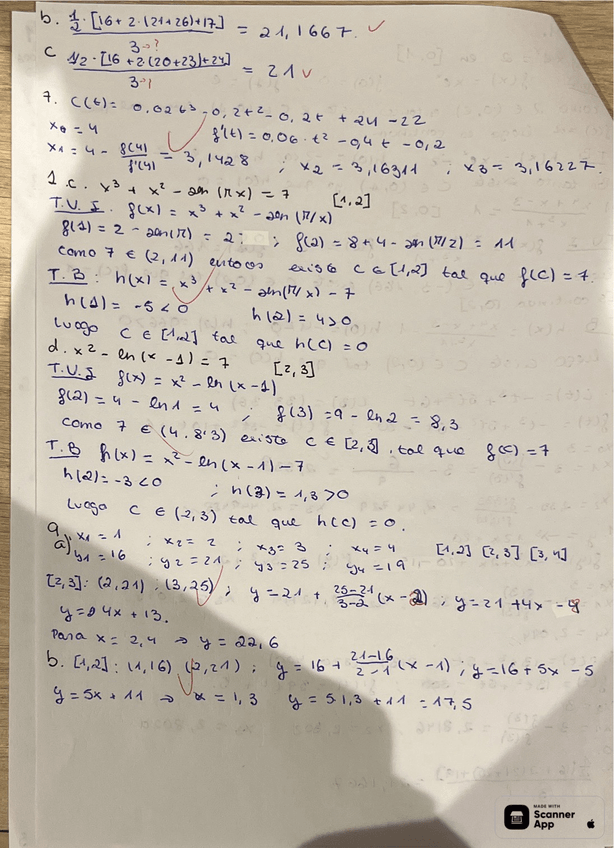 b. 1/2 · [16 + 2 · (21+26) + 17] / 3 → ? = 21,1667.
c 1/2 · [16 + 2 · (20+23) + 24] / 3 → ! = 21
7. C(t) = 0,02t³ - 0,2t² - 0,2t + 24 - 22
x₀ = 4 f'(t) = 0,06 · t² - 0,4t - 0,2
x₁ = 4 - f(4)/f'(4) = 3,1428 ; x₂ = 3,16311 ; x₃ = 3,16227.
1. c. x³ + x² - sen(πx) = 7 [1,2]
T.V.I. f(x) = x³ + x² - sen(π/x)
f(1) = 2 - sen(π) = 2 ; f(2) = 8 + 4 - sen(π/2) = 11
como 7 ∈ (2,11) entoces existe c ∈ [1,2] tal que f(c) = 7.
T.B: h(x) = x³ + x² - sen(π/x) - 7
h(1) = -5 < 0 h(2) = 4 > 0
Luogo c ∈ [1,2] tal que h(c) = 0
d. x² - ln(x - 1) = 7 [2,3]
T.V.I f(x) = x² - ln(x-1)
f(2) = 4 - ln1 = 4 ; f(3) = 9 - ln2 = 8,3
como 7 ∈ (4.8.3) existe c ∈ [2,3] . tal que f(c) = 7
T.B h(x) = x² - ln(x-1) - 7
h(2) = -3 < 0 ; h(3) = 1,3 > 0
Luogo c ∈ (2,3) tal que h(c) = 0.
9
a) x₁ = 1 ; x₂ = 2 ; x₃ = 3 ; x₄ = 4 [1,2] [2,3] [3,4]
y₁ = 16 ; y₂ = 21 ; y₃ = 25 ; y₄ = 19
[2,3] : (2,21) ; (3,25) ; y = 21 + 25-21/3-2 (x - 2) ; y = 21 + 4x - 8
y = 4x + 13.
Para x = 2,4 → y = 22,6
b. [1,2] : (1,16) (2,21) ; y = 16 + 21-16/2-1 (x - 1) ; y = 16 + 5x - 5
y = 5x + 11 → x = 1,3 y = 5 1,3 + 11 = 17,5
MADE WITH
Scanner
App